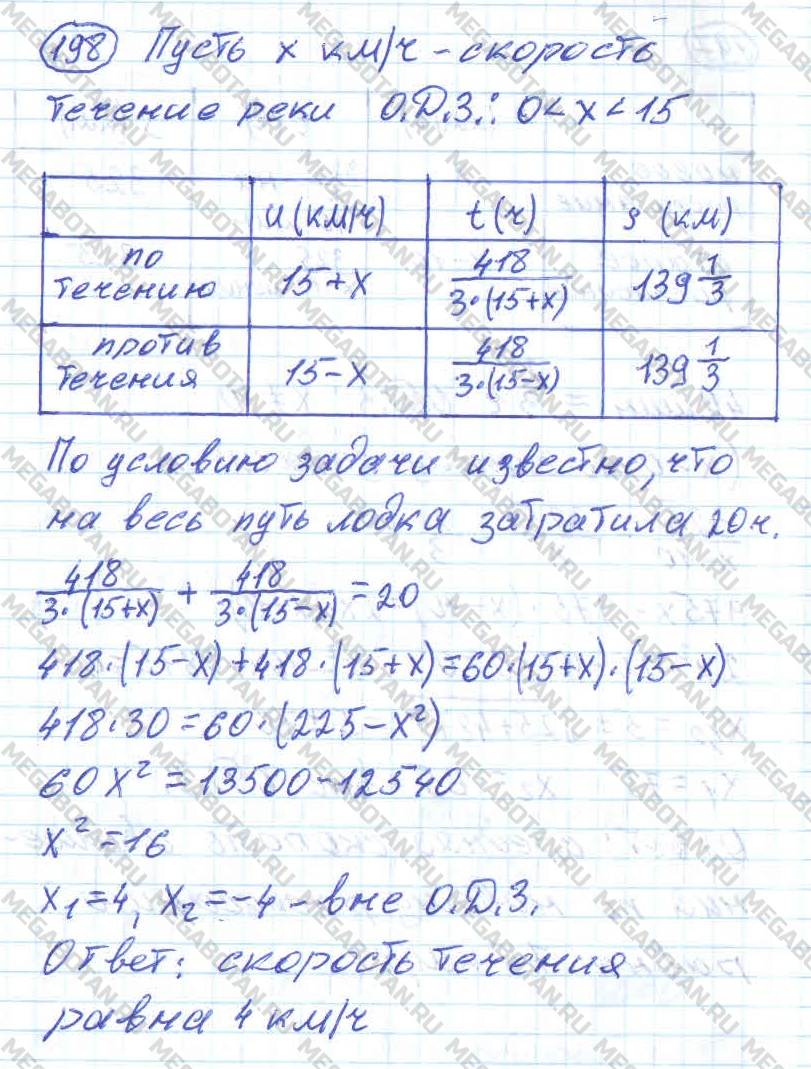 198 Пусть x км/ч - скорость
течение реки О.Д.З.: 0 < x < 15
u (км/ч) t (ч) s (км)
по течению 15+x 418/3·(15+x) 139 1/3
против течения 15-x 418/3·(15-x) 139 1/3
По условию задачи известно, что
на весь путь лодка затратила 20 ч.
418/3·(15+x) + 418/3·(15-x) = 20
418·(15-x)+418·(15+x)=60·(15+x)·(15-x)
418·30=60·(225-x²)
60x²=13500-12540
x²=16
x₁=4, x₂=-4 - вне О.Д.З.
Ответ: скорость течения
равна 4 км/ч
MEGABOTAN.RU